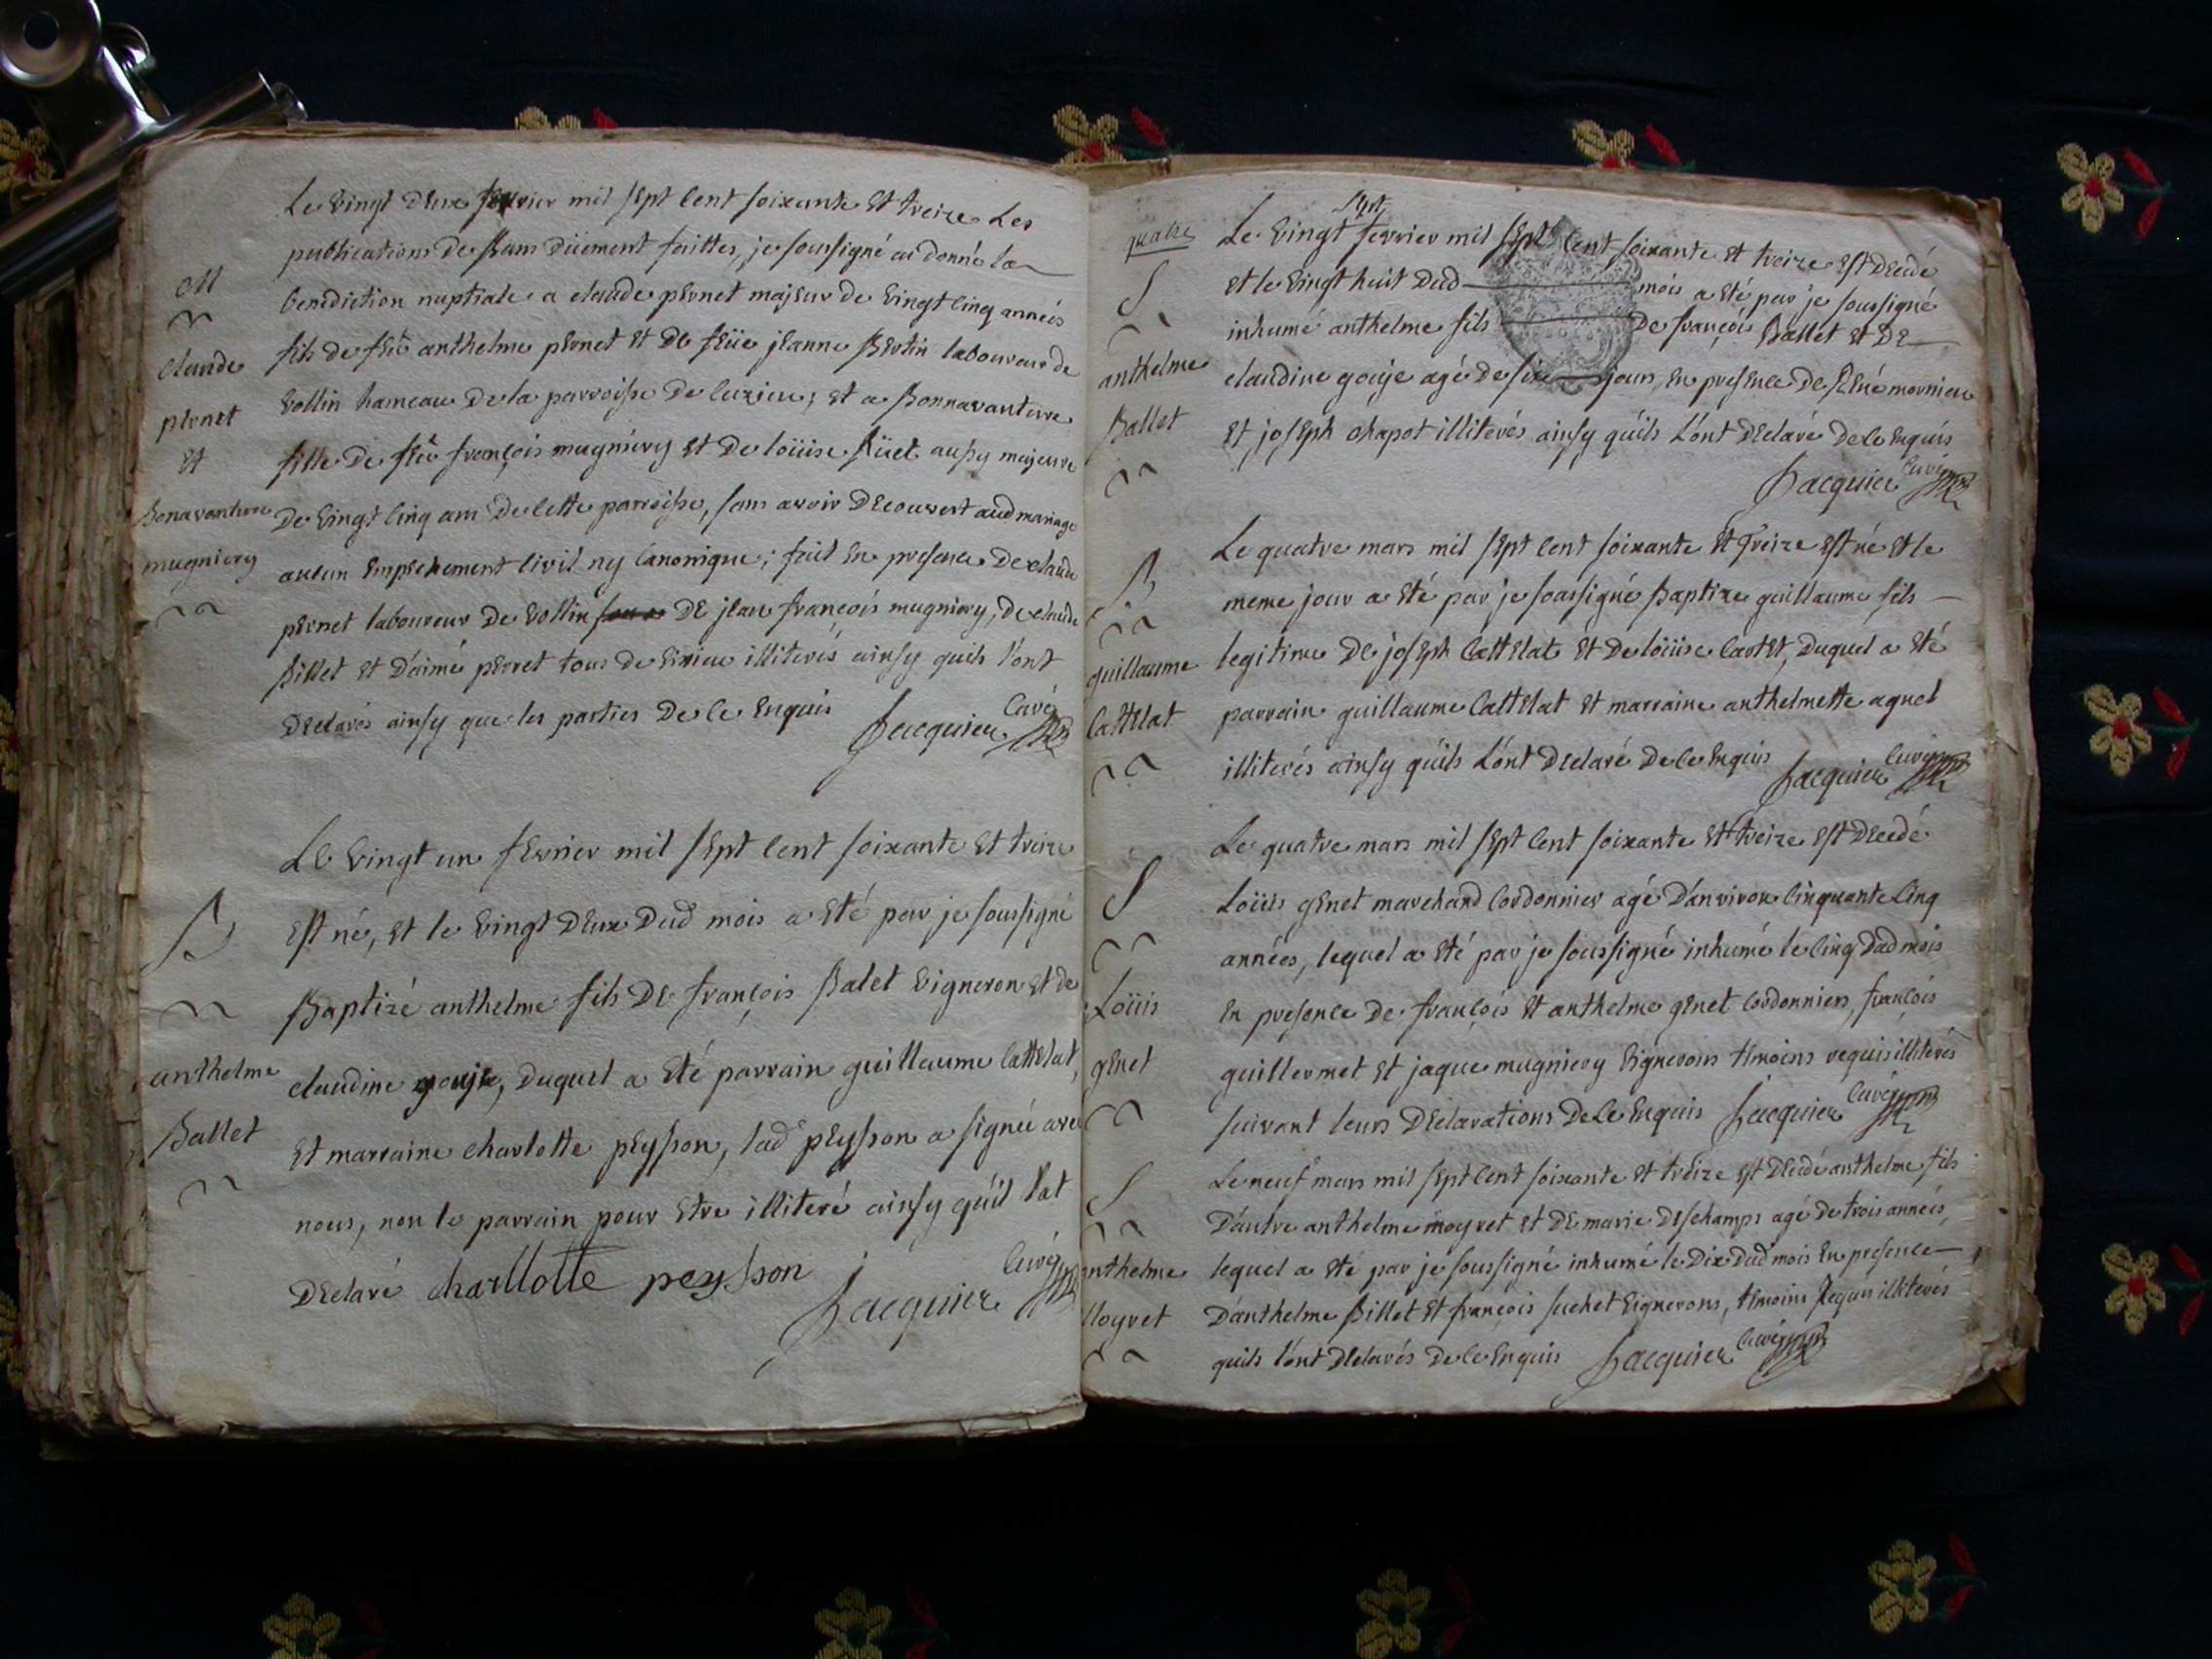 Le vingt deux fevrier mil sept cent soixante et treize Les
publications de Bans düement faittes, je soussigné ai donné la
M
benediction nuptiale a claude pernet majeur de vingt cinq années
claude
fils de feû anthelme pernet et de feüe jeanne Bertin laboureur de
pernet
vollin hameau de la parroisse de cuzieu, et a Bonnavanture
et
fille de feû françois mugniery et de loüise Rüet aussy majeure
Bonavanture
de vingt cinq ans de cette parroisse, sans avoir decouvert aud mariage
mugniery
aucun empechement civil ny canonique; fait en presence de claude
pernet laboureur de vollin de jean françois mugniery, de claude
Billet et d'aimé perret tous de illiterés ainsy quils l'ont
declarés ainsy que les parties de ce enquis Jacquier Curé
Le vingt un fevrier mil sept cent soixante et treize
B
est né, et le vingt deux dud mois a eté par je soussigné
Baptizé anthelme fils de françois Balet vigneron et de
anthelme
claudine gouje, duquel a eté parrain guillaume Cattelat,
Ballet
et marraine charlotte peysson, lad peysson a signé avec
nous, non le parrain pour etre illiteré ainsy qu'il l'at
declaré charllotte peysson Jacquier Curé
quatre
Le vingt sept fevrier mil sept cent soixante et treize est decedé
S
et le vingt huit dud mois a eté par je soussigné
inhumé anthelme fils de françois Ballet et de
anthelme
claudine gouje agé de six jours, en presence de René mornieu
Ballet
et joseph chapot illiterés ainsy qu'ils l'ont declaré de ce enquis
Jacquier Curé
Le quatre mars mil sept cent soixante et treize est né et le
B
meme jour a eté par je soussigné Baptize guillaume fils
guillaume
legitime de joseph Cattelat et de loüise Cartet, duquel a eté
Cattelat
parrain guillaume Cattelat et marraine anthelmette agnel
illiterés ainsy qu'ils l'ont declaré de ce enquis Jacquier Curé
Le quatre mars mil sept cent soixante et treize est decedé
S
Loüis genet marchand cordonnier agé d'anviron cinquante cinq
années, lequel a eté par je soussigné inhumé le cinq dud mois
Loüis
en presence de françois et anthelme genet cordonniers, françois
genet
guillermet et jaque mugniery vignerons temoins requis illiterés
suivant leurs declarations de ce enquis Jacquier Curé
Le neuf mars mil sept cent soixante et treize est decedé anthelme fils
S
d'autre anthelme moyret et de marie deschamps agé de trois années,
anthelme
lequel a eté par je soussigné inhumé le dix dud mois en presence
Moyret
d'anthelme Billet et françois suchet vignerons, temoins Requis illiterés
quils l'ont declarés de ce enquis Jacquier Curé